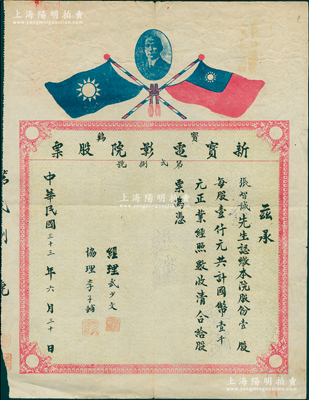 上海陽明拍賣
www.sh-yangming.com
寶鷄
新寶電影院股票
第弍捌號
茲承
張智誠先生認繳本院股份壹股
每股壹仟元共計國幣壹千
元正業經照數收清合給股
票為憑
經理 武少文
協理 李子鏞
中華民國三十三年六月三十日
上海陽明拍賣